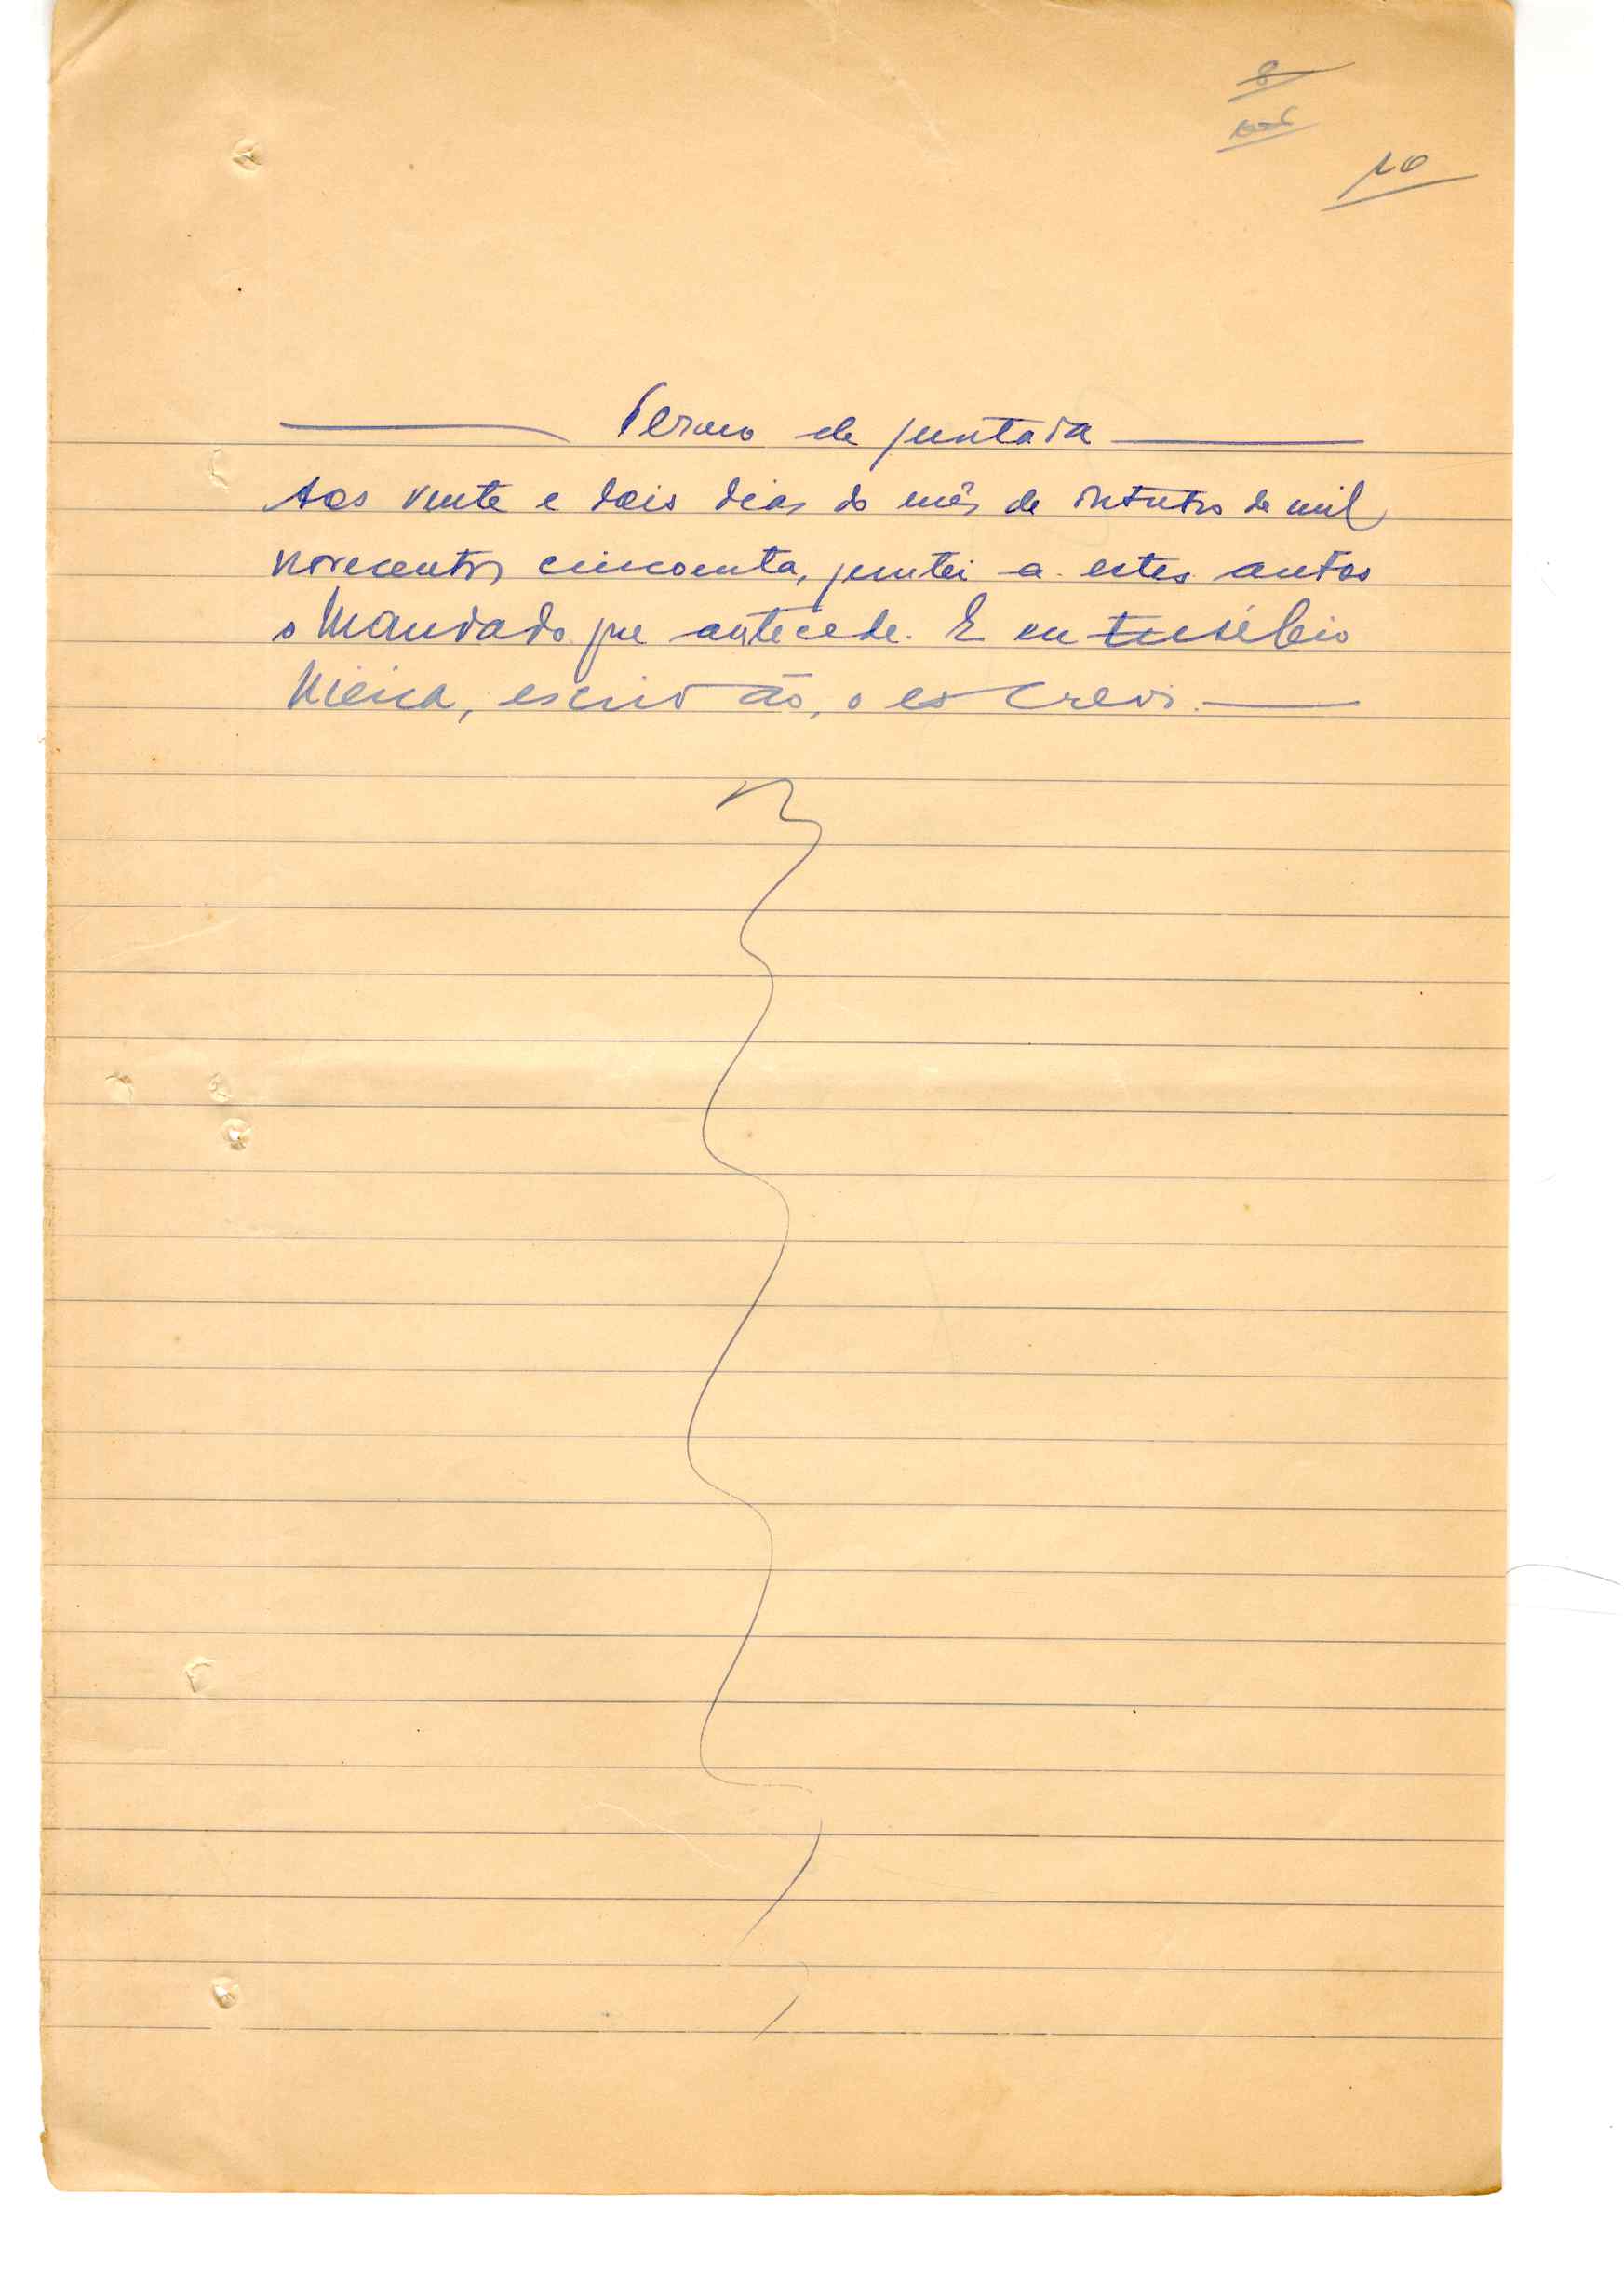 8
10
Termo de juntada
Aos vinte e dois dias do mês de outubro de mil
novecentos cincoenta, juntei a estes autos
o Mandado que antecede. E eu Eusébio
Vieira, escrivão, o escrevi.